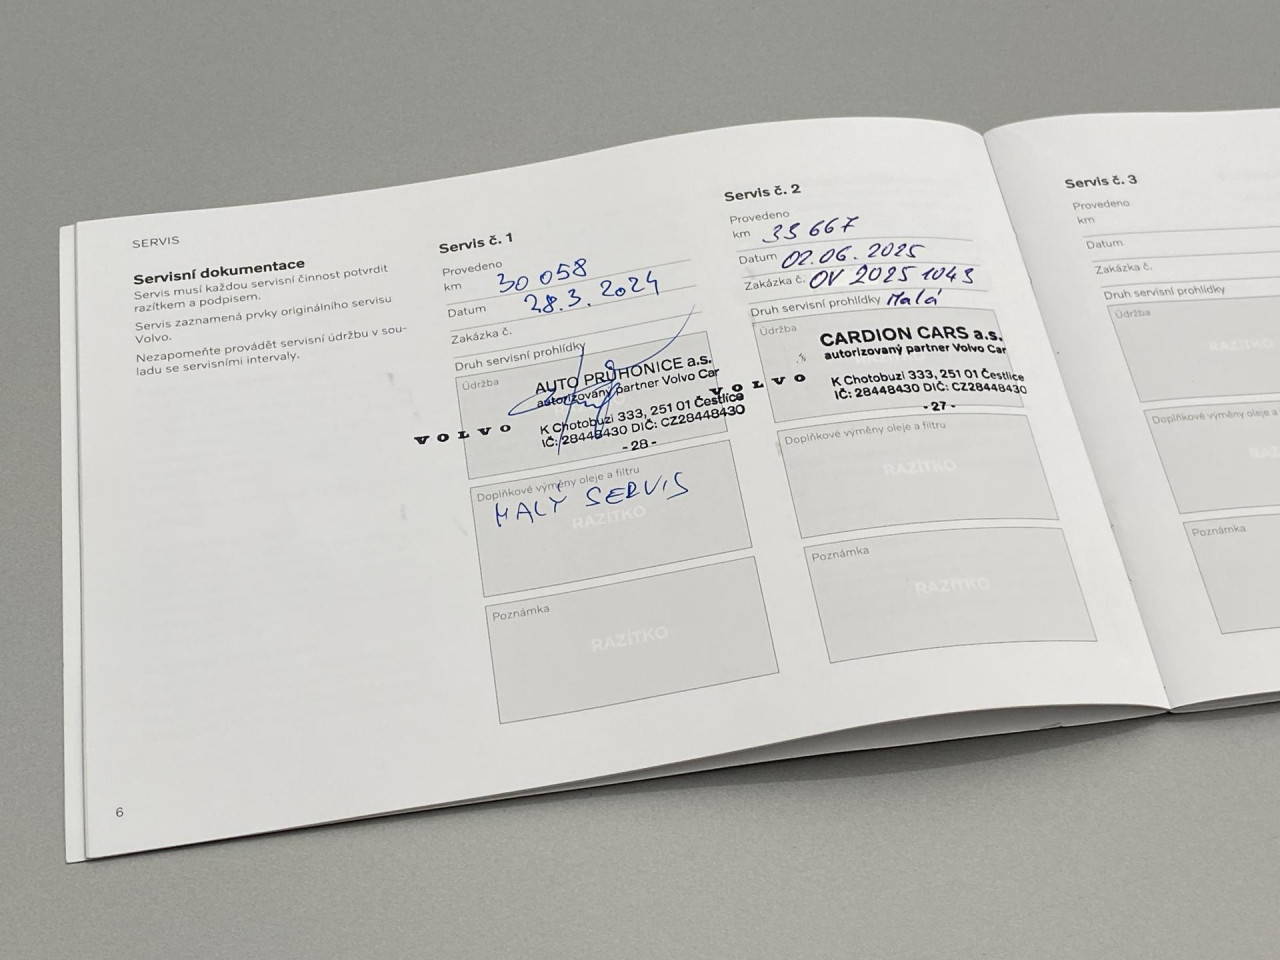 SERVIS
Servisní dokumentace
Servis musí každou servisní činnost potvrdit
razítkem a podpisem.
Servis zaznamená prvky originálního servisu
Volvo.
Nezapomeňte provádět servisní údržbu v sou-
ladu se servisními intervaly.
6
Servis č. 1
Provedeno
km 30 058
Datum 28.3.2024
Zakázka č.
Druh servisní prohlídky
Údržba
VOLVO
AUTO PRŮHONICE a.s.
autorizovaný partner Volvo Car
K Chotobuzi 333, 251 01 Čestlice
IČ: 28448430 DIČ: CZ28448430
- 28 -
Doplňkové výměny oleje a filtru
MALÝ SERVIS
RAZÍTKO
Poznámka
RAZÍTKO
Servis č. 2
Provedeno
km 35 667
Datum 02.06.2025
Zakázka č. OV 2025 1043
Druh servisní prohlídky Malá
Údržba
VOLVO
CARDION CARS a.s.
autorizovaný partner Volvo Car
K Chotobuzi 333, 251 01 Čestlice
IČ: 28448430 DIČ: CZ28448430
- 27 -
Doplňkové výměny oleje a filtru
RAZÍTKO
Poznámka
RAZÍTKO
Servis č. 3
Provedeno
km
Datum
Zakázka č.
Druh servisní prohlídky
Údržba
RAZÍTKO
Doplňkové výměny oleje a
Poznámka